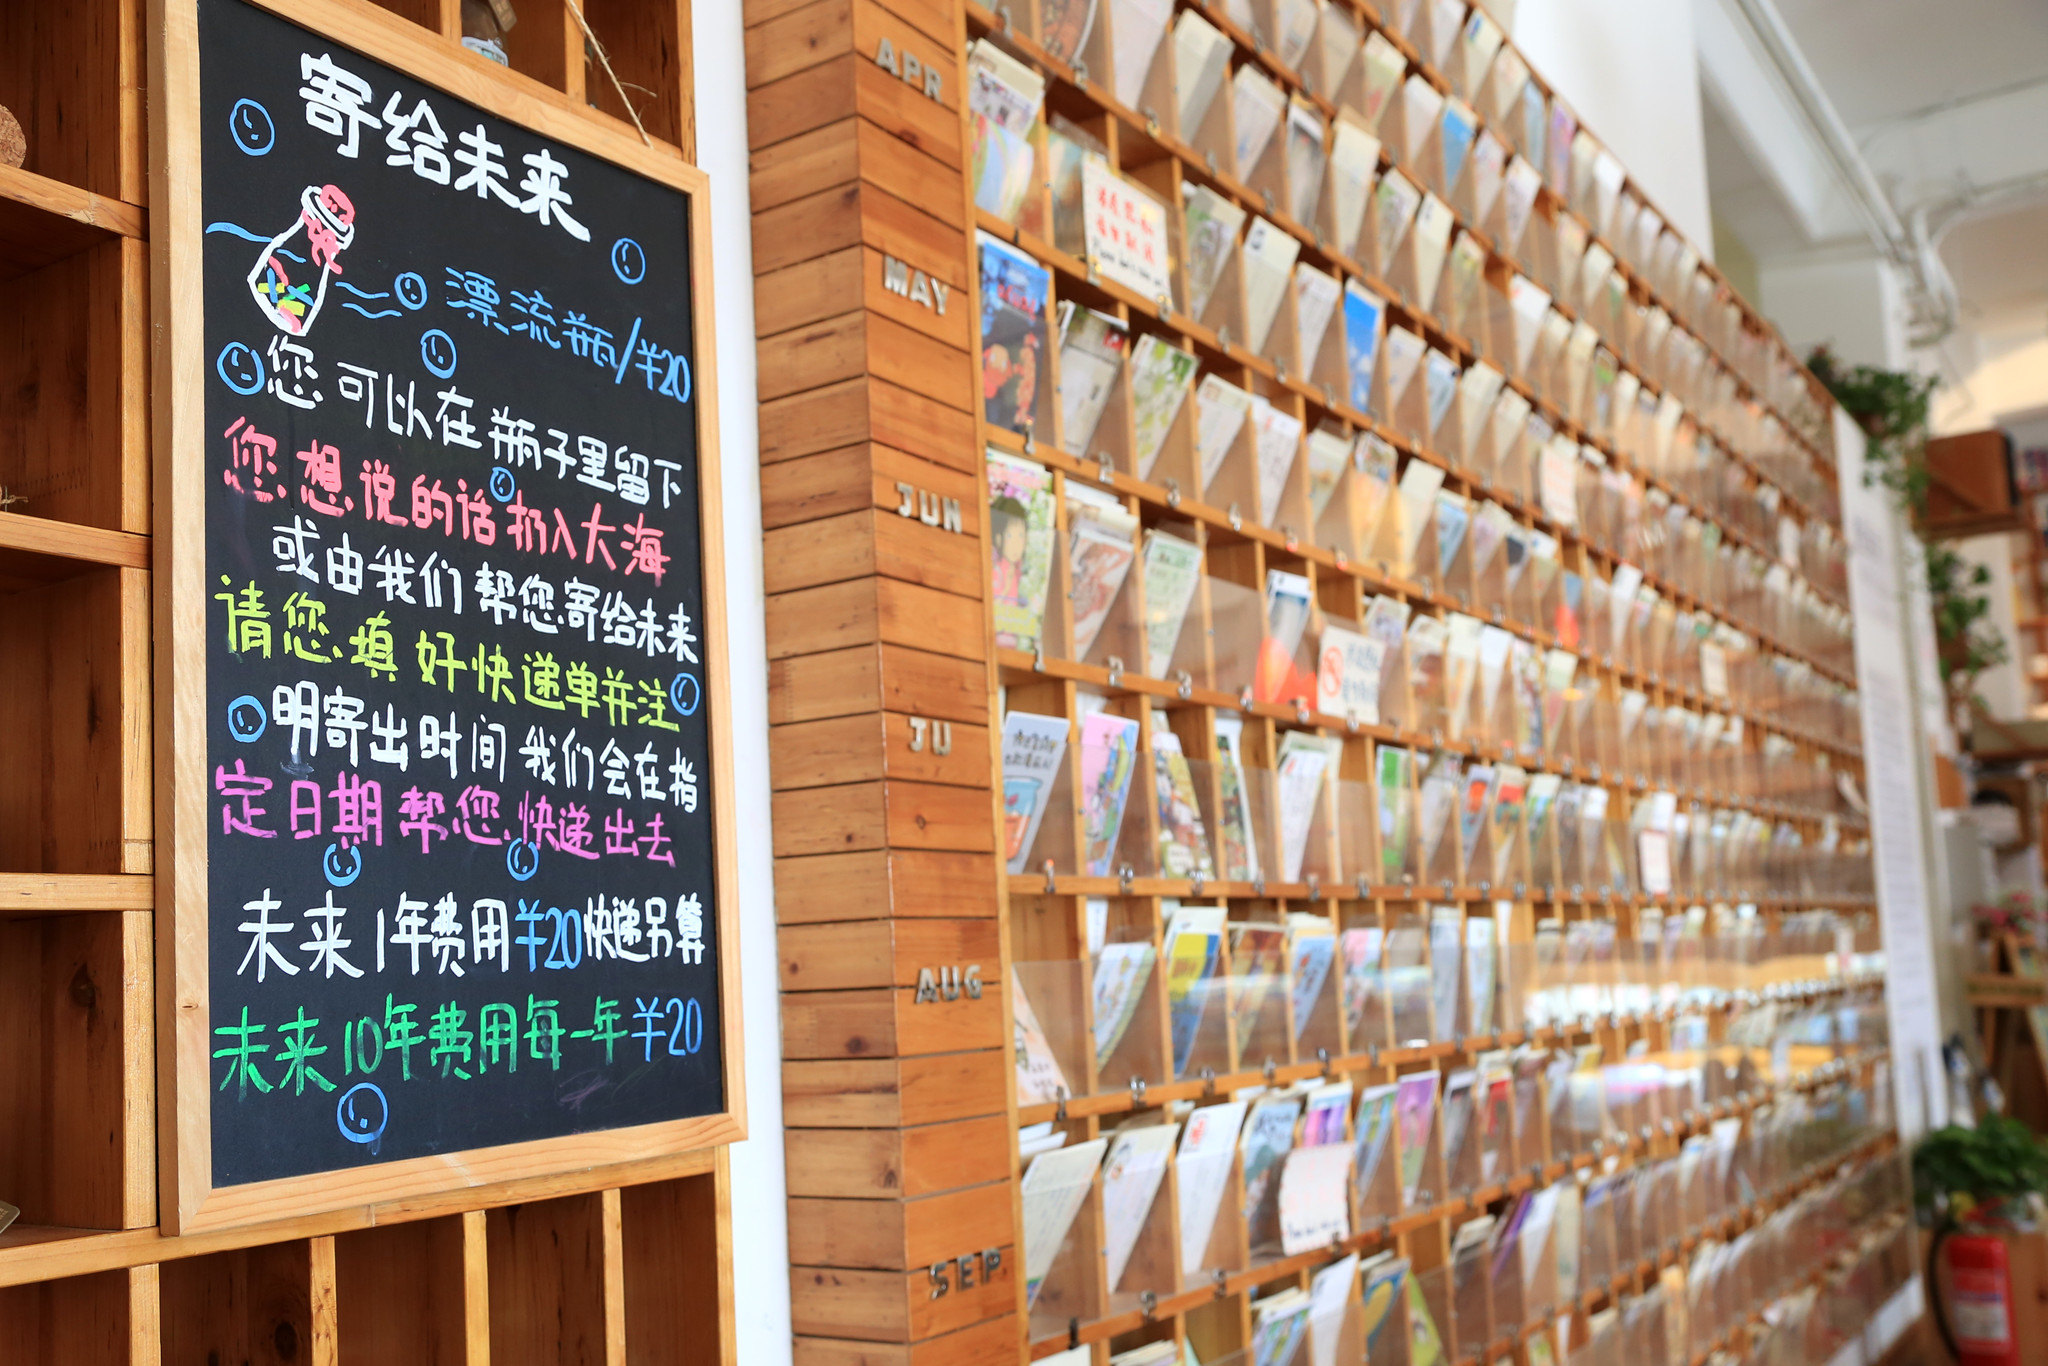 寄给未来
漂流瓶/¥20
您可以在瓶子里留下
您想说的话扔入大海
或由我们帮您寄给未来
请您填好快递单并注
明寄出时间我们会在指
定日期帮您快递出去
未来1年费用¥20快递另算
未来10年费用每一年¥20
APR
MAY
JUN
JU
AUG
SEP